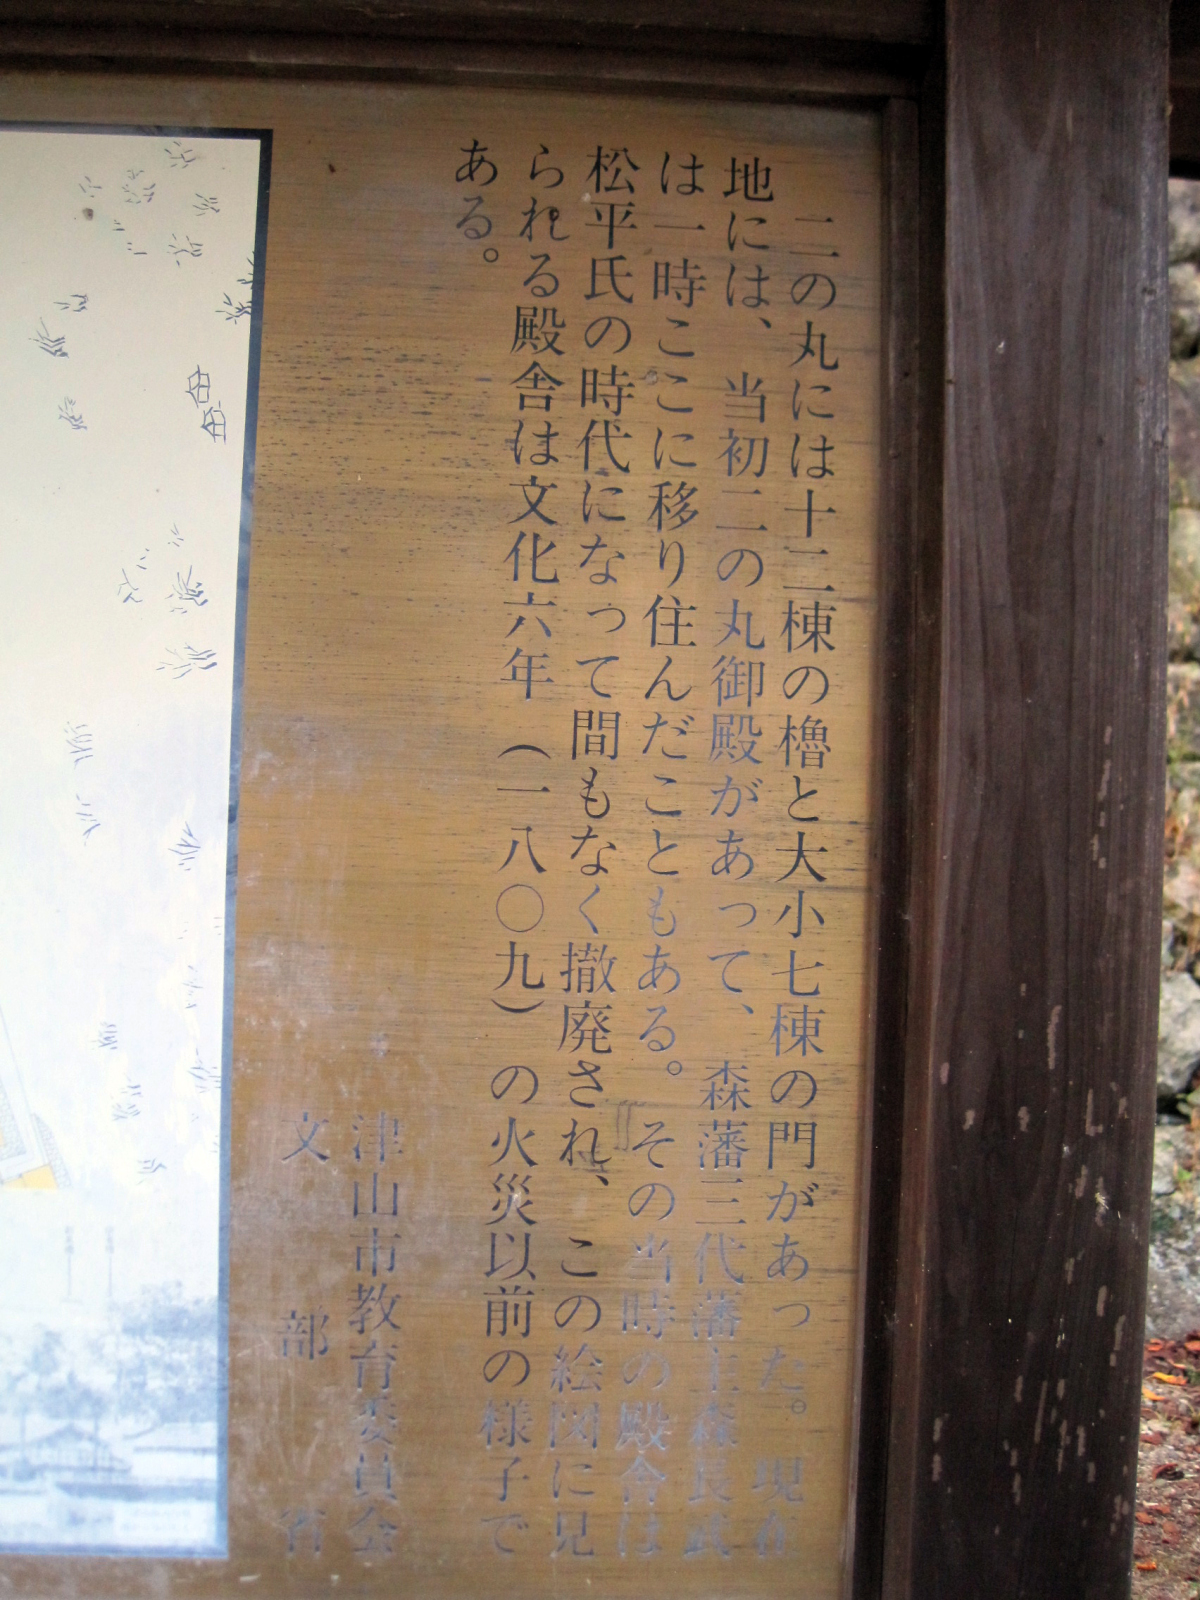 二の丸には十二棟の櫓と大小七棟の門があった。現在
地には、当初二の丸御殿があって、森藩三代藩主森長武
は一時ここに移り住んだこともある。その当時の殿舎は
松平氏の時代になって間もなく撤廃され、この絵図に見
られる殿舎は文化六年(一八〇九)の火災以前の様子で
ある。
津山市教育委員会
文部省